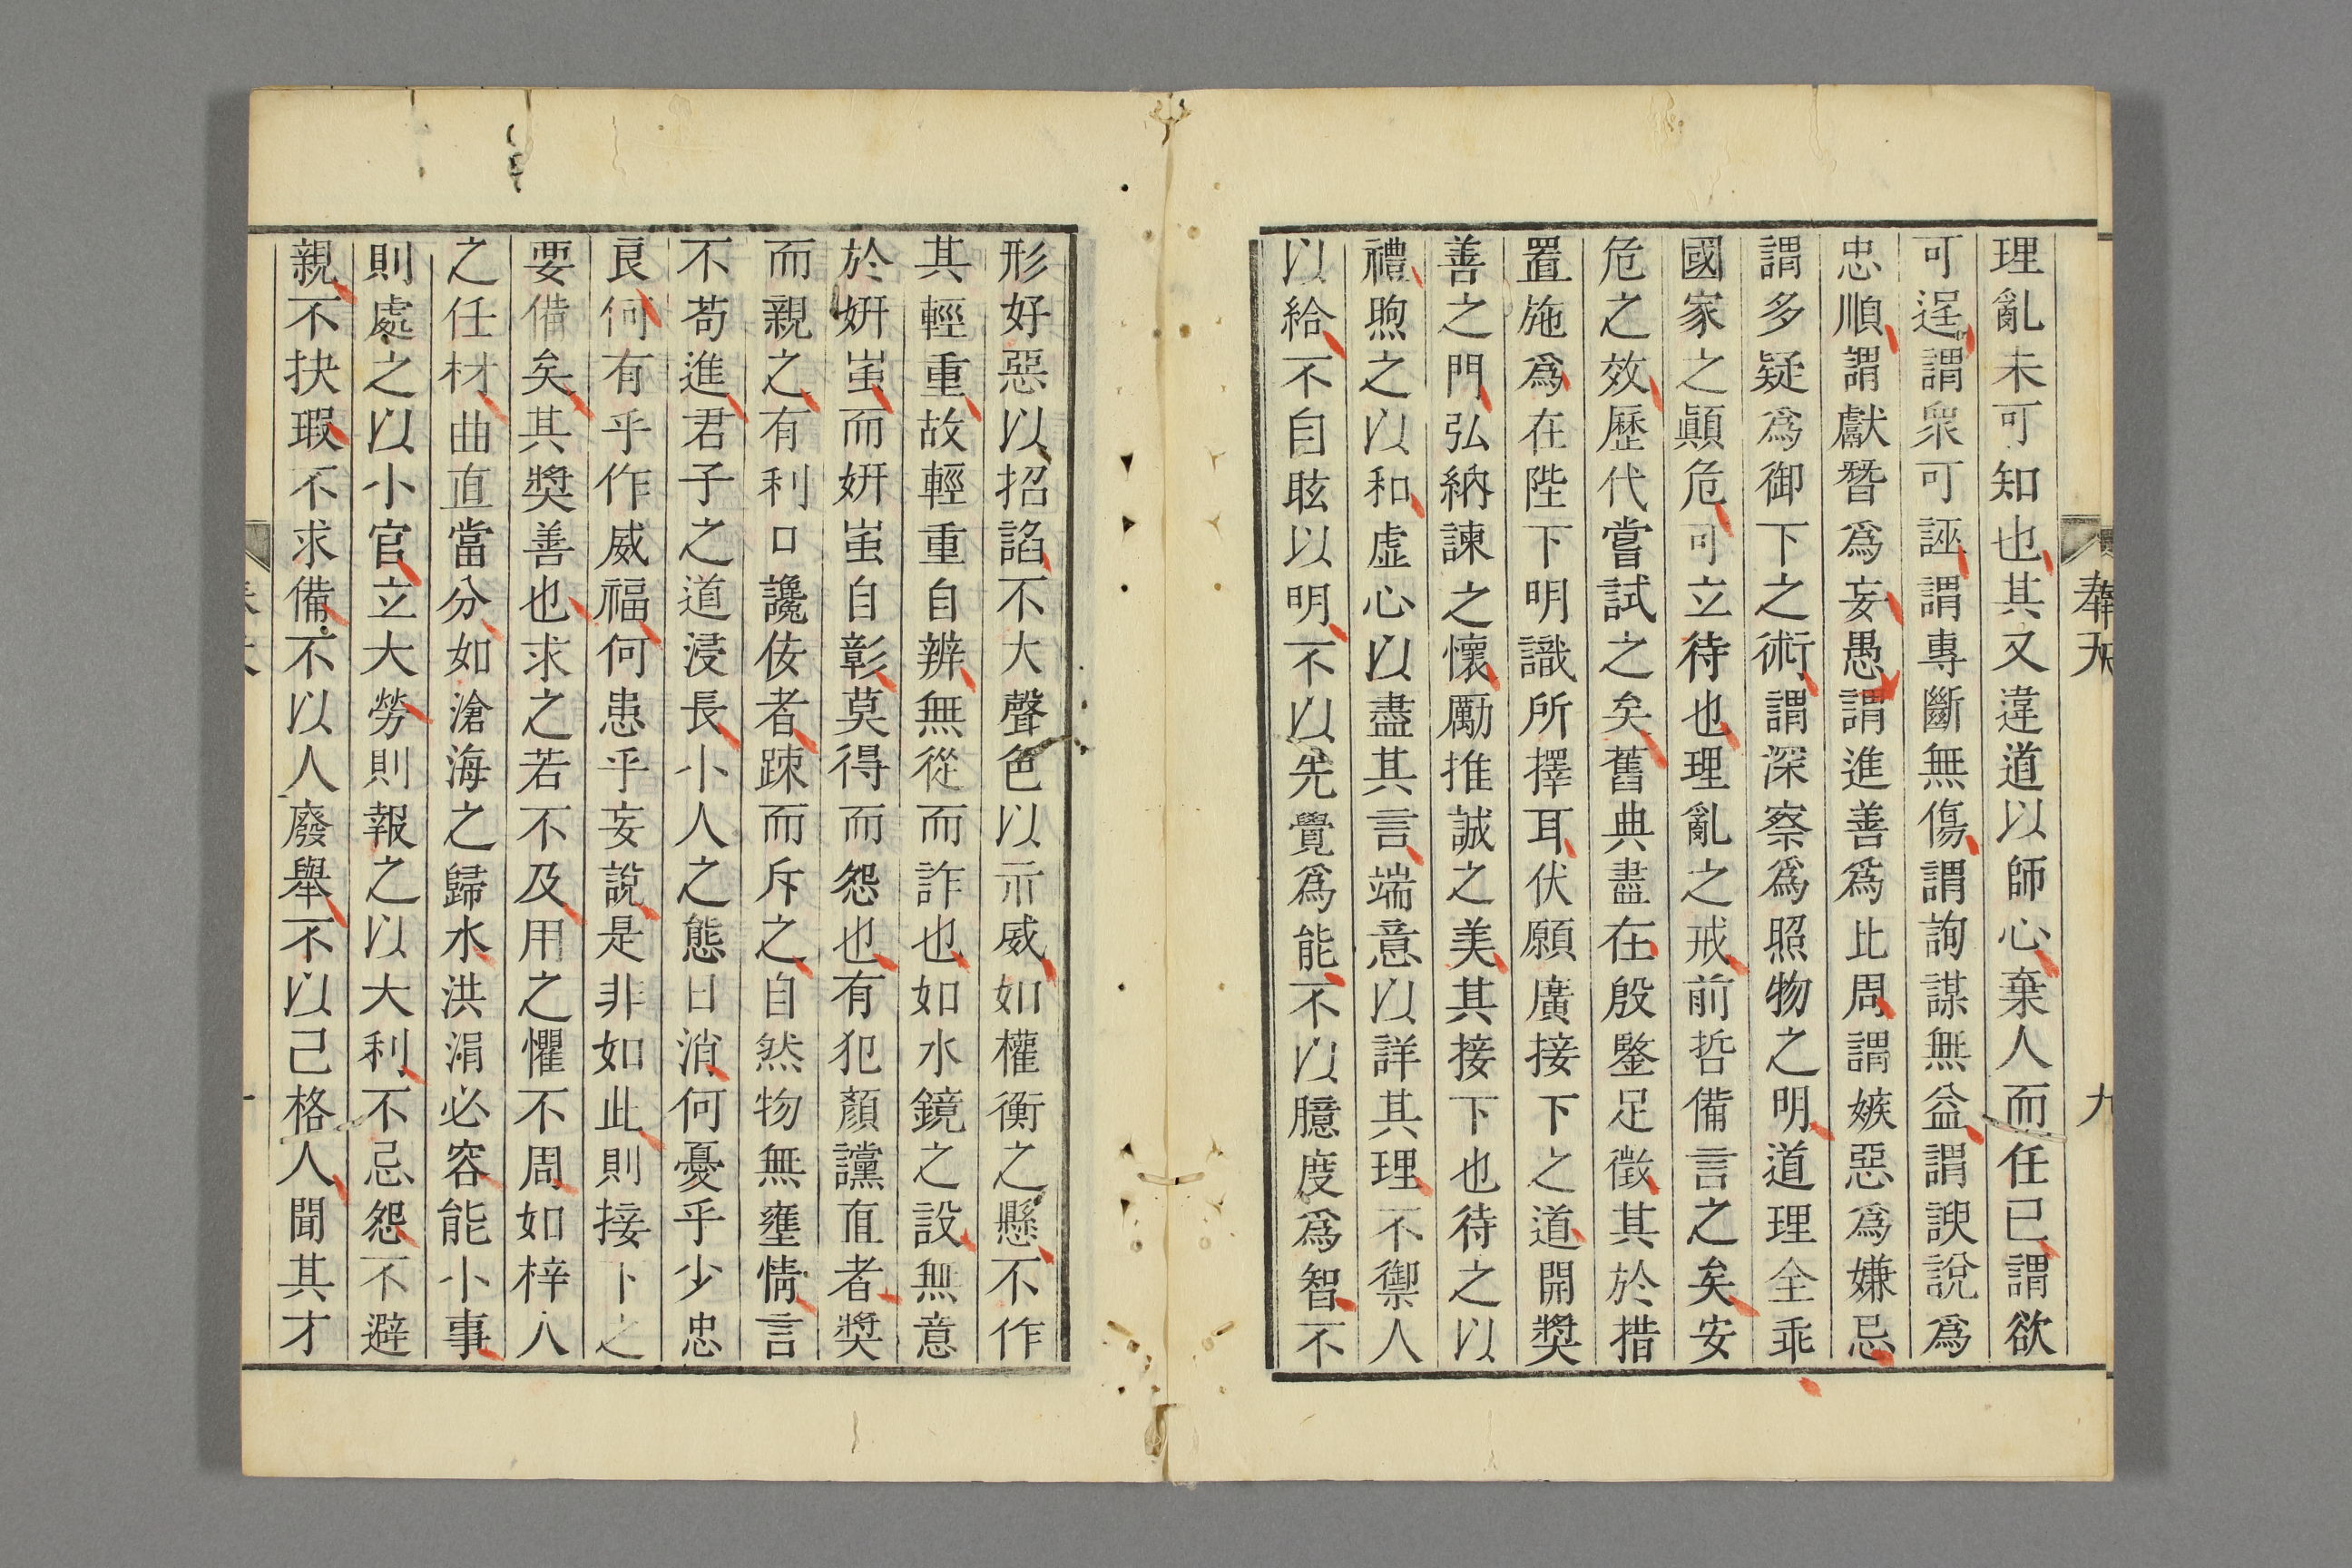 理亂未可知也其又違道以師心棄人而任已謂欲
可逞謂衆可誣謂專斷無傷謂詢謀無益謂諛說爲
忠順謂獻替爲妄愚謂進善爲比周謂嫉惡爲嫌忌
謂多疑爲御下之術謂深察爲照物之明道理全乖
國家之顚危可立待也理亂之戒前哲備言之矣安
危之效歷代嘗試之矣舊典盡在殷鑒足徵其於措
置施爲在陛下明識所擇耳伏願廣接下之道開奬
善之門弘納諫之懷勵推誠之美其接下也待之以
禮煦之以和虛心以盡其言端意以詳其理不禦人
以給不自眩以明不以先覺爲能不以臆度爲智不
形好惡以招諂不大聲色以示威如權衡之懸不作
其輕重故輕重自辨無從而詐也如水鏡之設無意
於姸蚩而姸蚩自彰莫得而怨也有犯顏讜直者奬
而親之有利口讒佞者踈而斥之自然物無壅情言
不苟進君子之道浸長小人之態日消何憂乎少忠
良何有乎作威福何患乎妄說是非如此則接下之
要備矣其奬善也求之若不及用之懼不周如梓人
之任材曲直當分如滄海之歸水洪涓必容能小事
則處之以小官立大勞則報之以大利不忌怨不避
親不抉瑕不求備不以人廢舉不以己格人聞其才
奉天
九